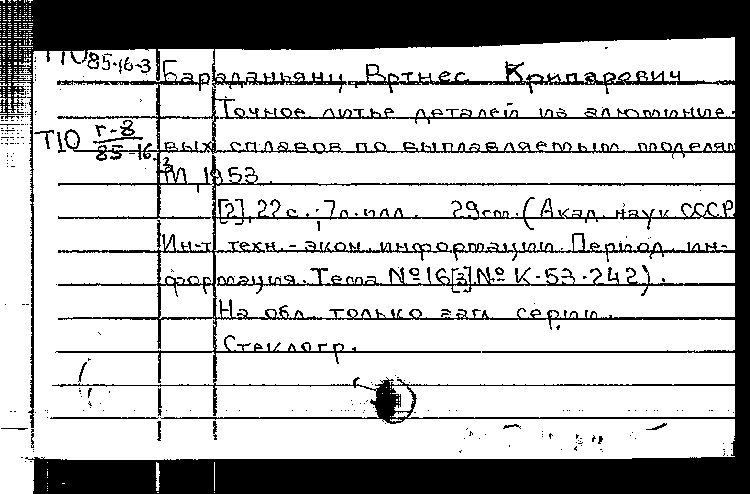 Т10 85-16-3
Бараданьянц, Вртнес Крипарович
Точное литье деталей из алюминие-
Т10 Г-8/85-16. вых сплавов по выплавляемым моделям
М, 1953.
[2], 22 с.; 7 л. илл. 29 см. (Акад. наук СССР.
Ин-т техн.-экон. информации. Период. ин-
формация. Тема №16 [3] № К-53-242).
На обл. только загл. серии.
Стеклогр.